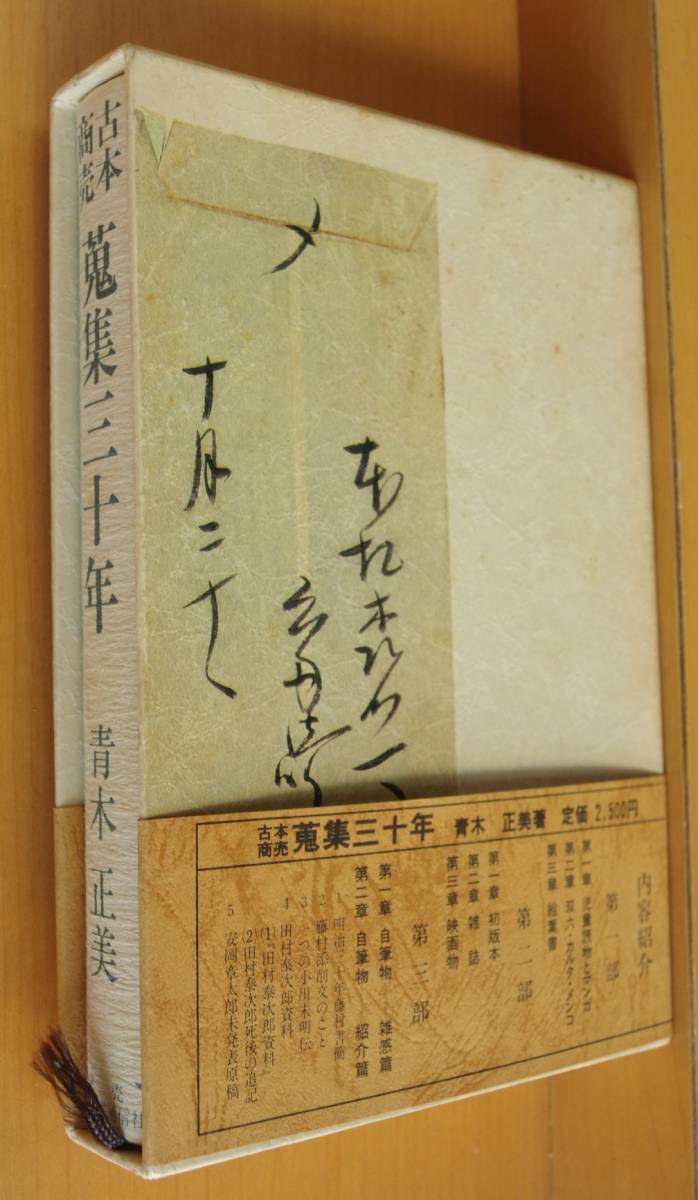 古本
商売
蒐集三十年
青木正美
〆
十月二十
古本
商売
蒐集三十年 青木 正美著 定価 2,500円
内容紹介
第一部
第一章 児童読物とマンガ
第二章 双六・カルタ・メンコ
第三章 絵葉書
第二部
第一章 初版本
第二章 雑誌
第三章 映画物
第三部
第一章 自筆物 雑感篇
第二章 自筆物 紹介篇
1 明治三十年藤村書簡
2 藤村添削文のこと
3 一つの小川未明伝
4 田村泰次郎資料
(1)『田村泰次郎資料』
(2)田村泰次郎死後の追記
5 安岡章太郎未発表原稿